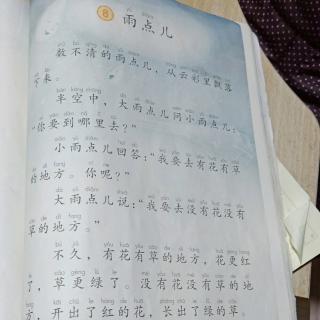 8 雨点儿
数不清的雨点儿，从云彩里飘落
下来。
半空中，大雨点儿问小雨点儿：
“你要到哪里去？”
小雨点儿回答：“我要去有花有草
的地方。你呢？”
大雨点儿说：“我要去没有花没有
草的地方。”
不久，有花有草的地方，花更红
了，草更绿了。没有花没有草的地
方，开出了红的花，长出了绿的草。